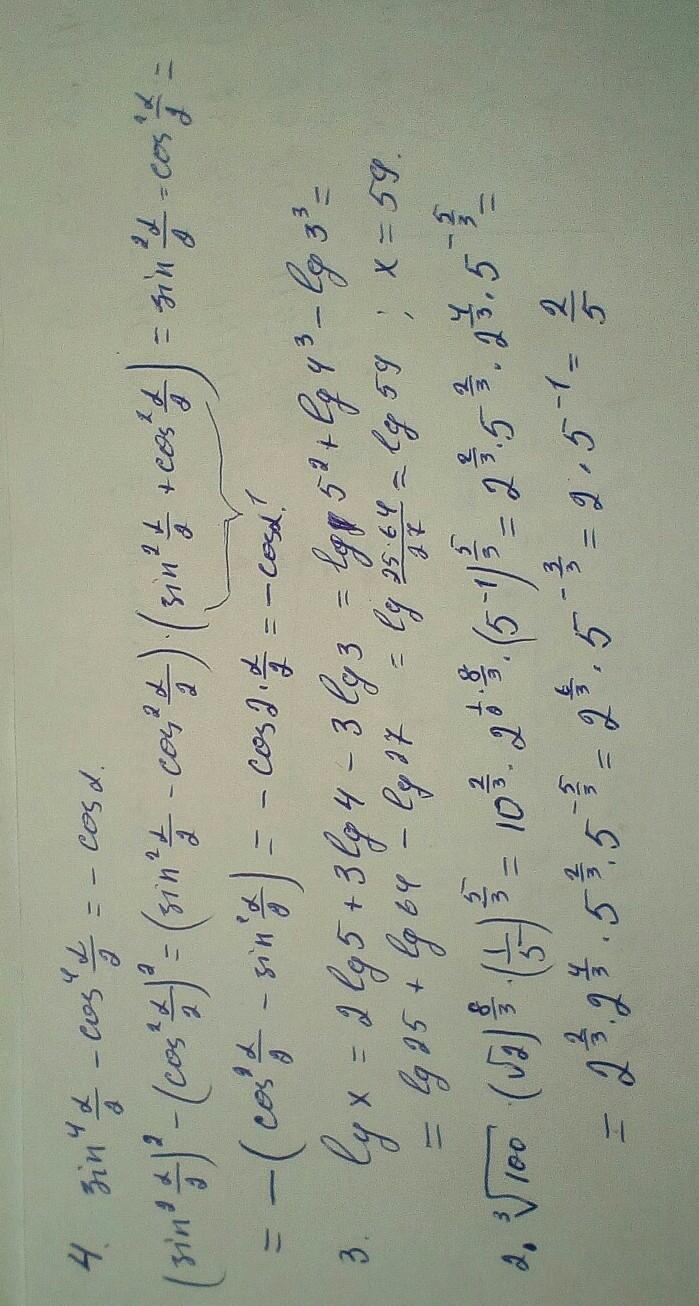 4. sin⁴ α/2 - cos⁴ α/2 = - cos α.
(sin² α/2)² - (cos² α/2)² = (sin² α/2 - cos² α/2) · (sin² α/2 + cos² α/2) = sin² α/2 - cos² α/2 =
1
= - (cos² α/2 - sin² α/2) = - cos 2 · α/2 = - cos α.
3. lg x = 2 lg 5 + 3 lg 4 - 3 lg 3 = lg 5² + lg 4³ - lg 3³ =
= lg 25 + lg 64 - lg 27 = lg 25·64/27 = lg 59 ; x = 59.
2. ³√100 · (√2)^8/3 · (1/5)^5/3 = 10^2/3 · 2^1/2·8/3 · (5^-1)^5/3 = 2^2/3 · 5^2/3 · 2^4/3 · 5^-5/3 =
= 2^2/3 · 2^4/3 · 5^2/3 · 5^-5/3 = 2^6/3 · 5^-3/3 = 2 · 5^-1 = 2/5